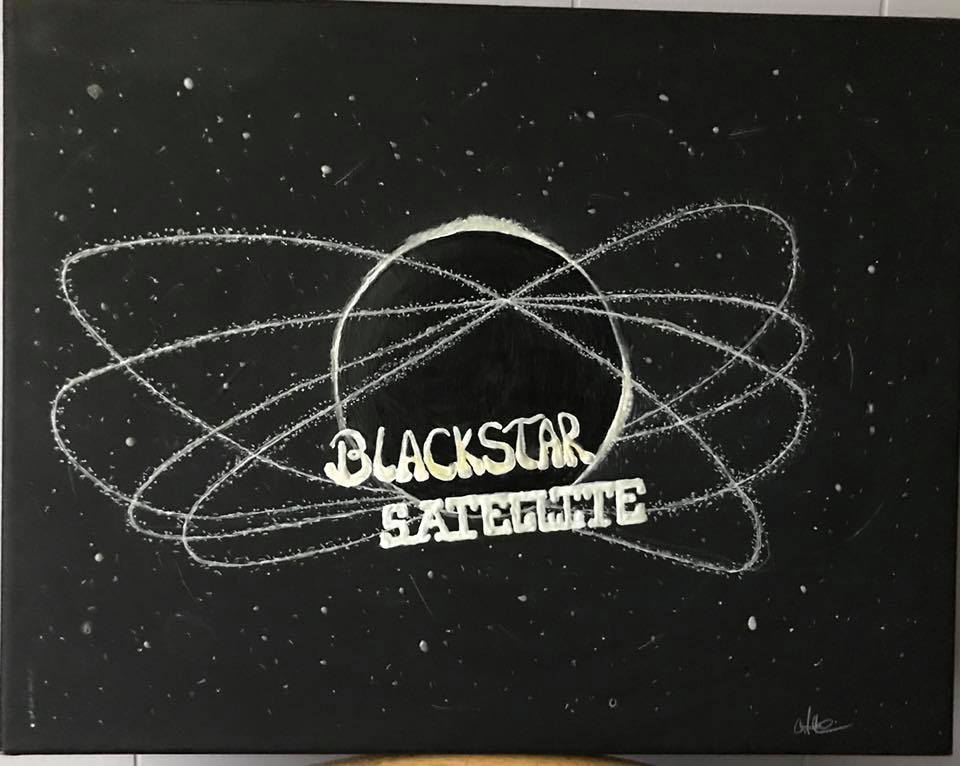 BLACKSTAR
SATELLITE